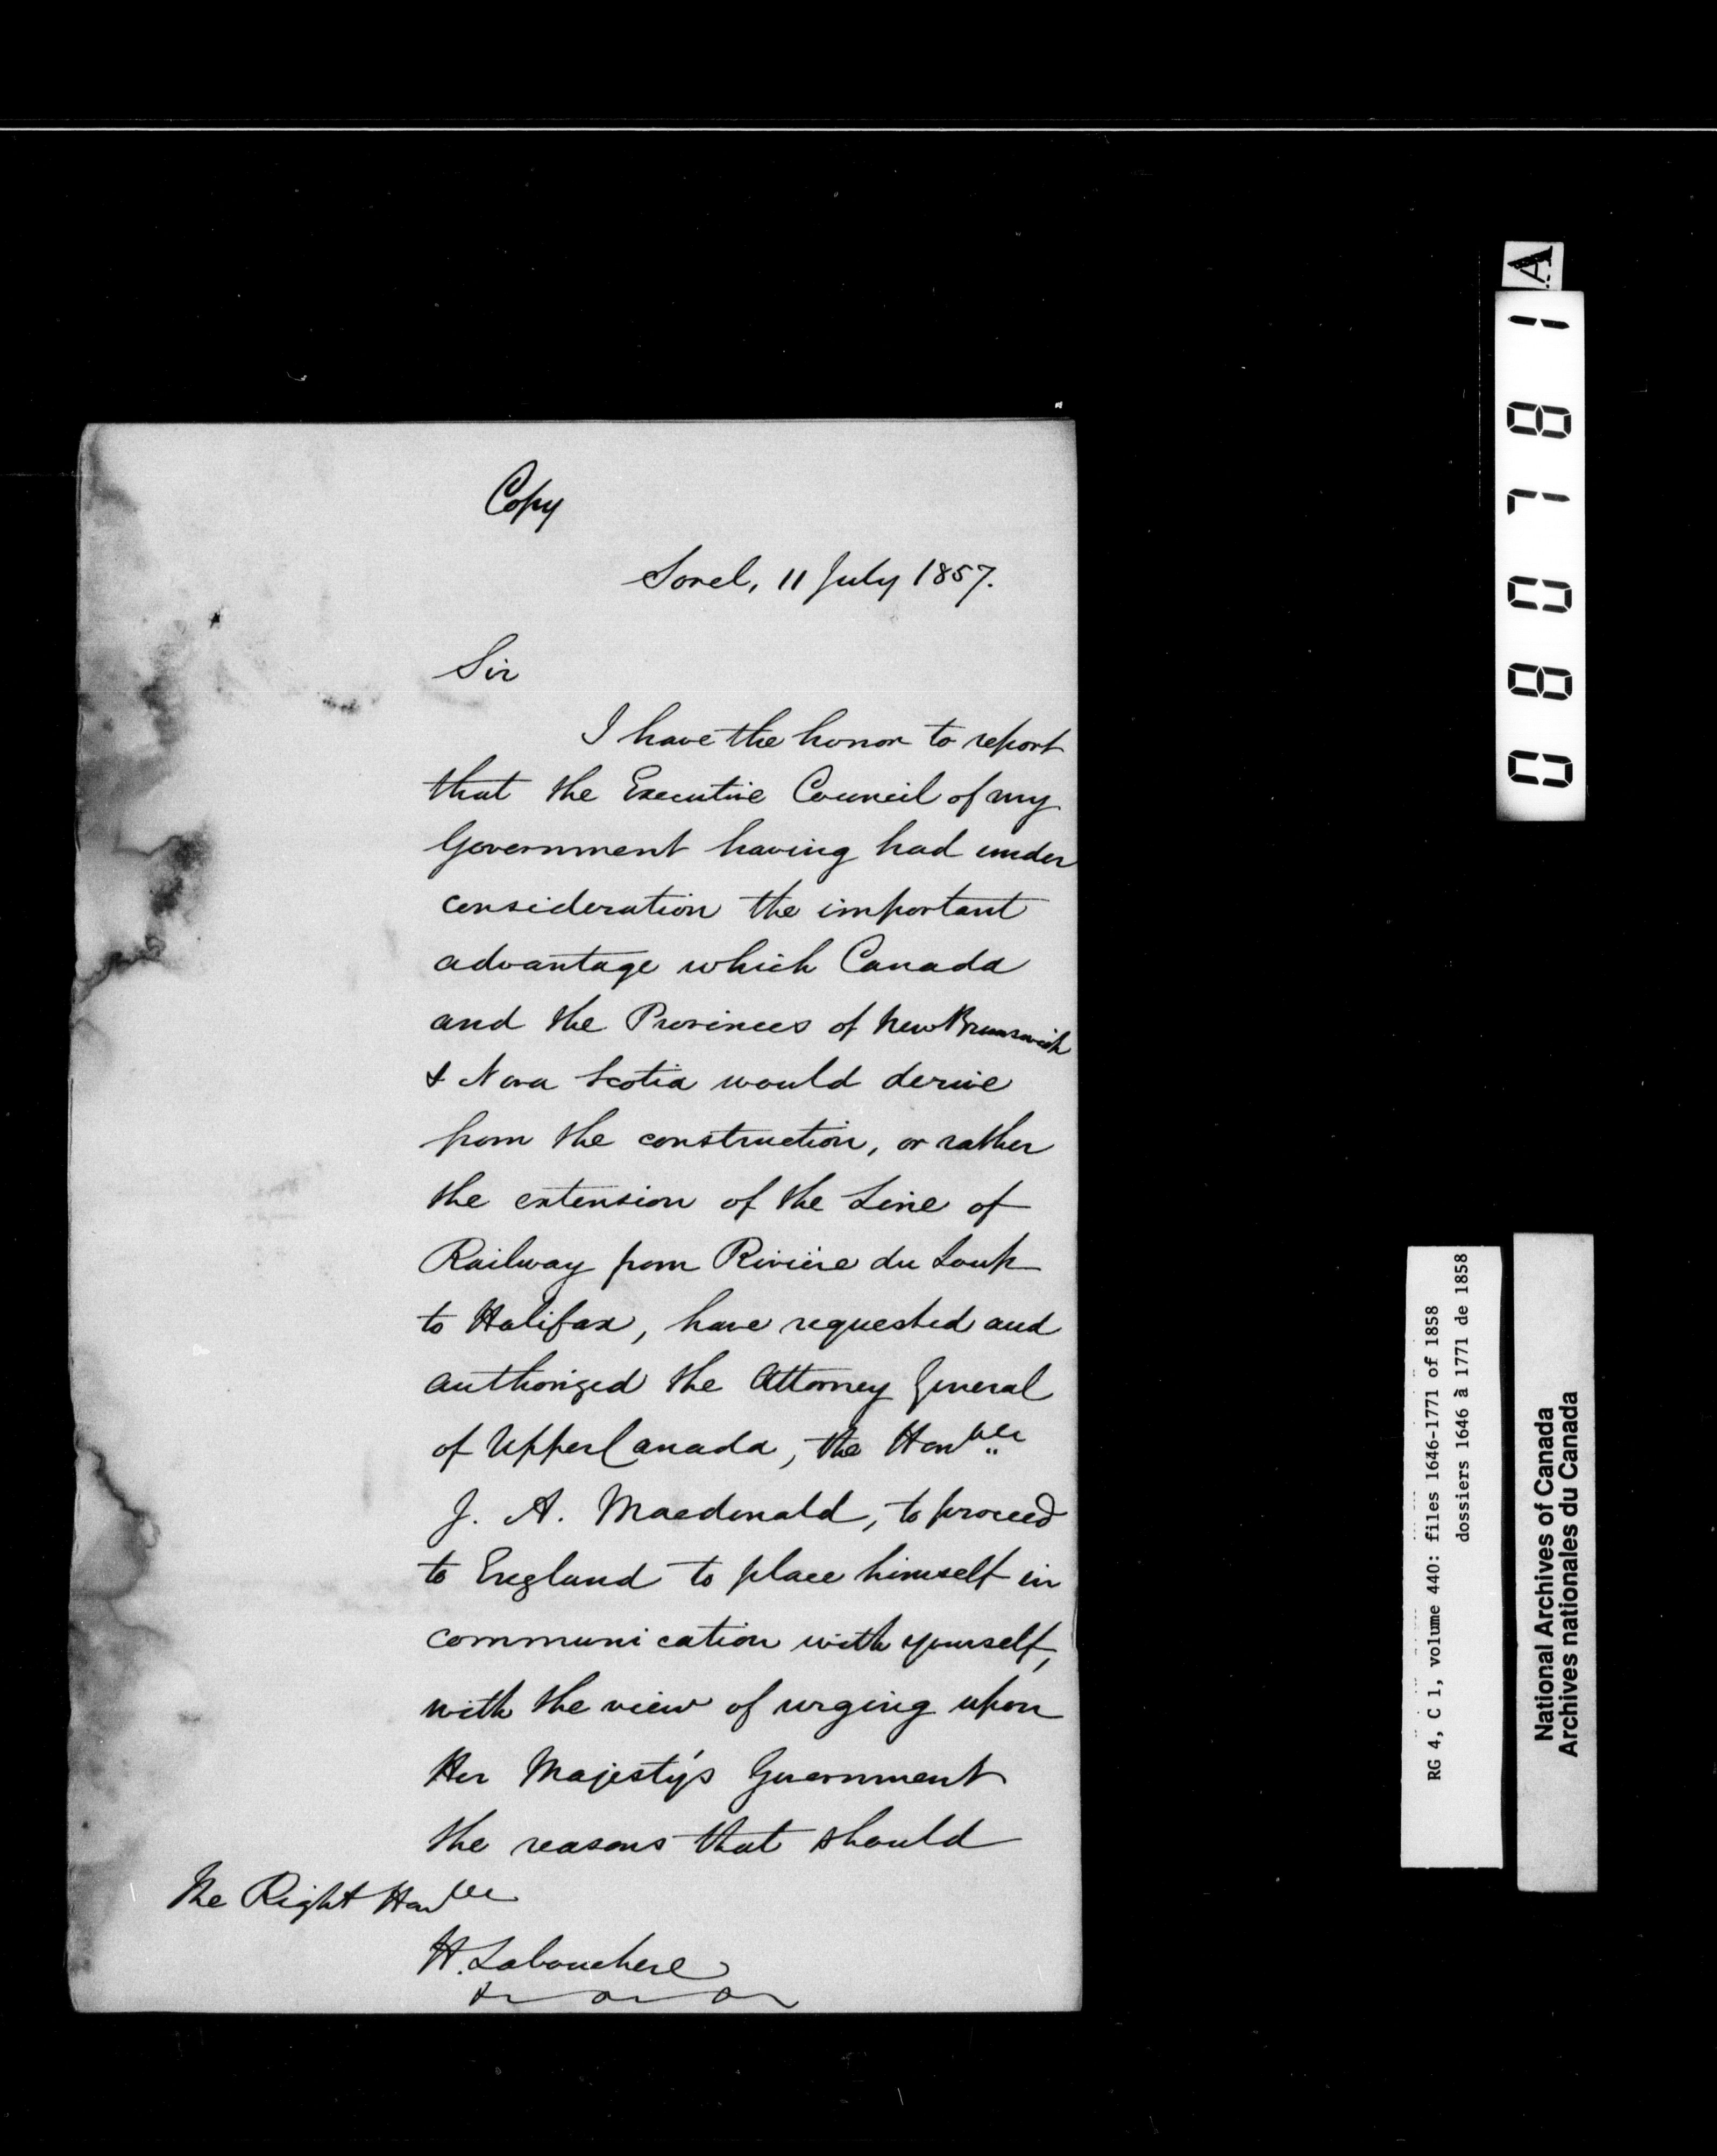 Copy
Sorel, 11 July 1857.
Sir
I have the honor to report
that the Executive Council of my
Government having had under
consideration the important
advantage which Canada
and the Provinces of New Brunswick
& Nova Scotia would derive
from the construction, or rather
the extension of the Line of
Railway from Rivière du Loup
to Halifax, have requested and
authorized the Attorney General
of Upper Canada, the Honble
J. A. Macdonald, to proceed
to England to place himself in
communication with yourself,
with the view of urging upon
Her Majesty's Government
the reasons that should
The Right Honble
H. Labouchere
& & &
080781
A
RG 4, C 1, volume 440: files 1646-1771 of 1858
dossiers 1646 à 1771 de 1858
National Archives of Canada
Archives nationales du Canada